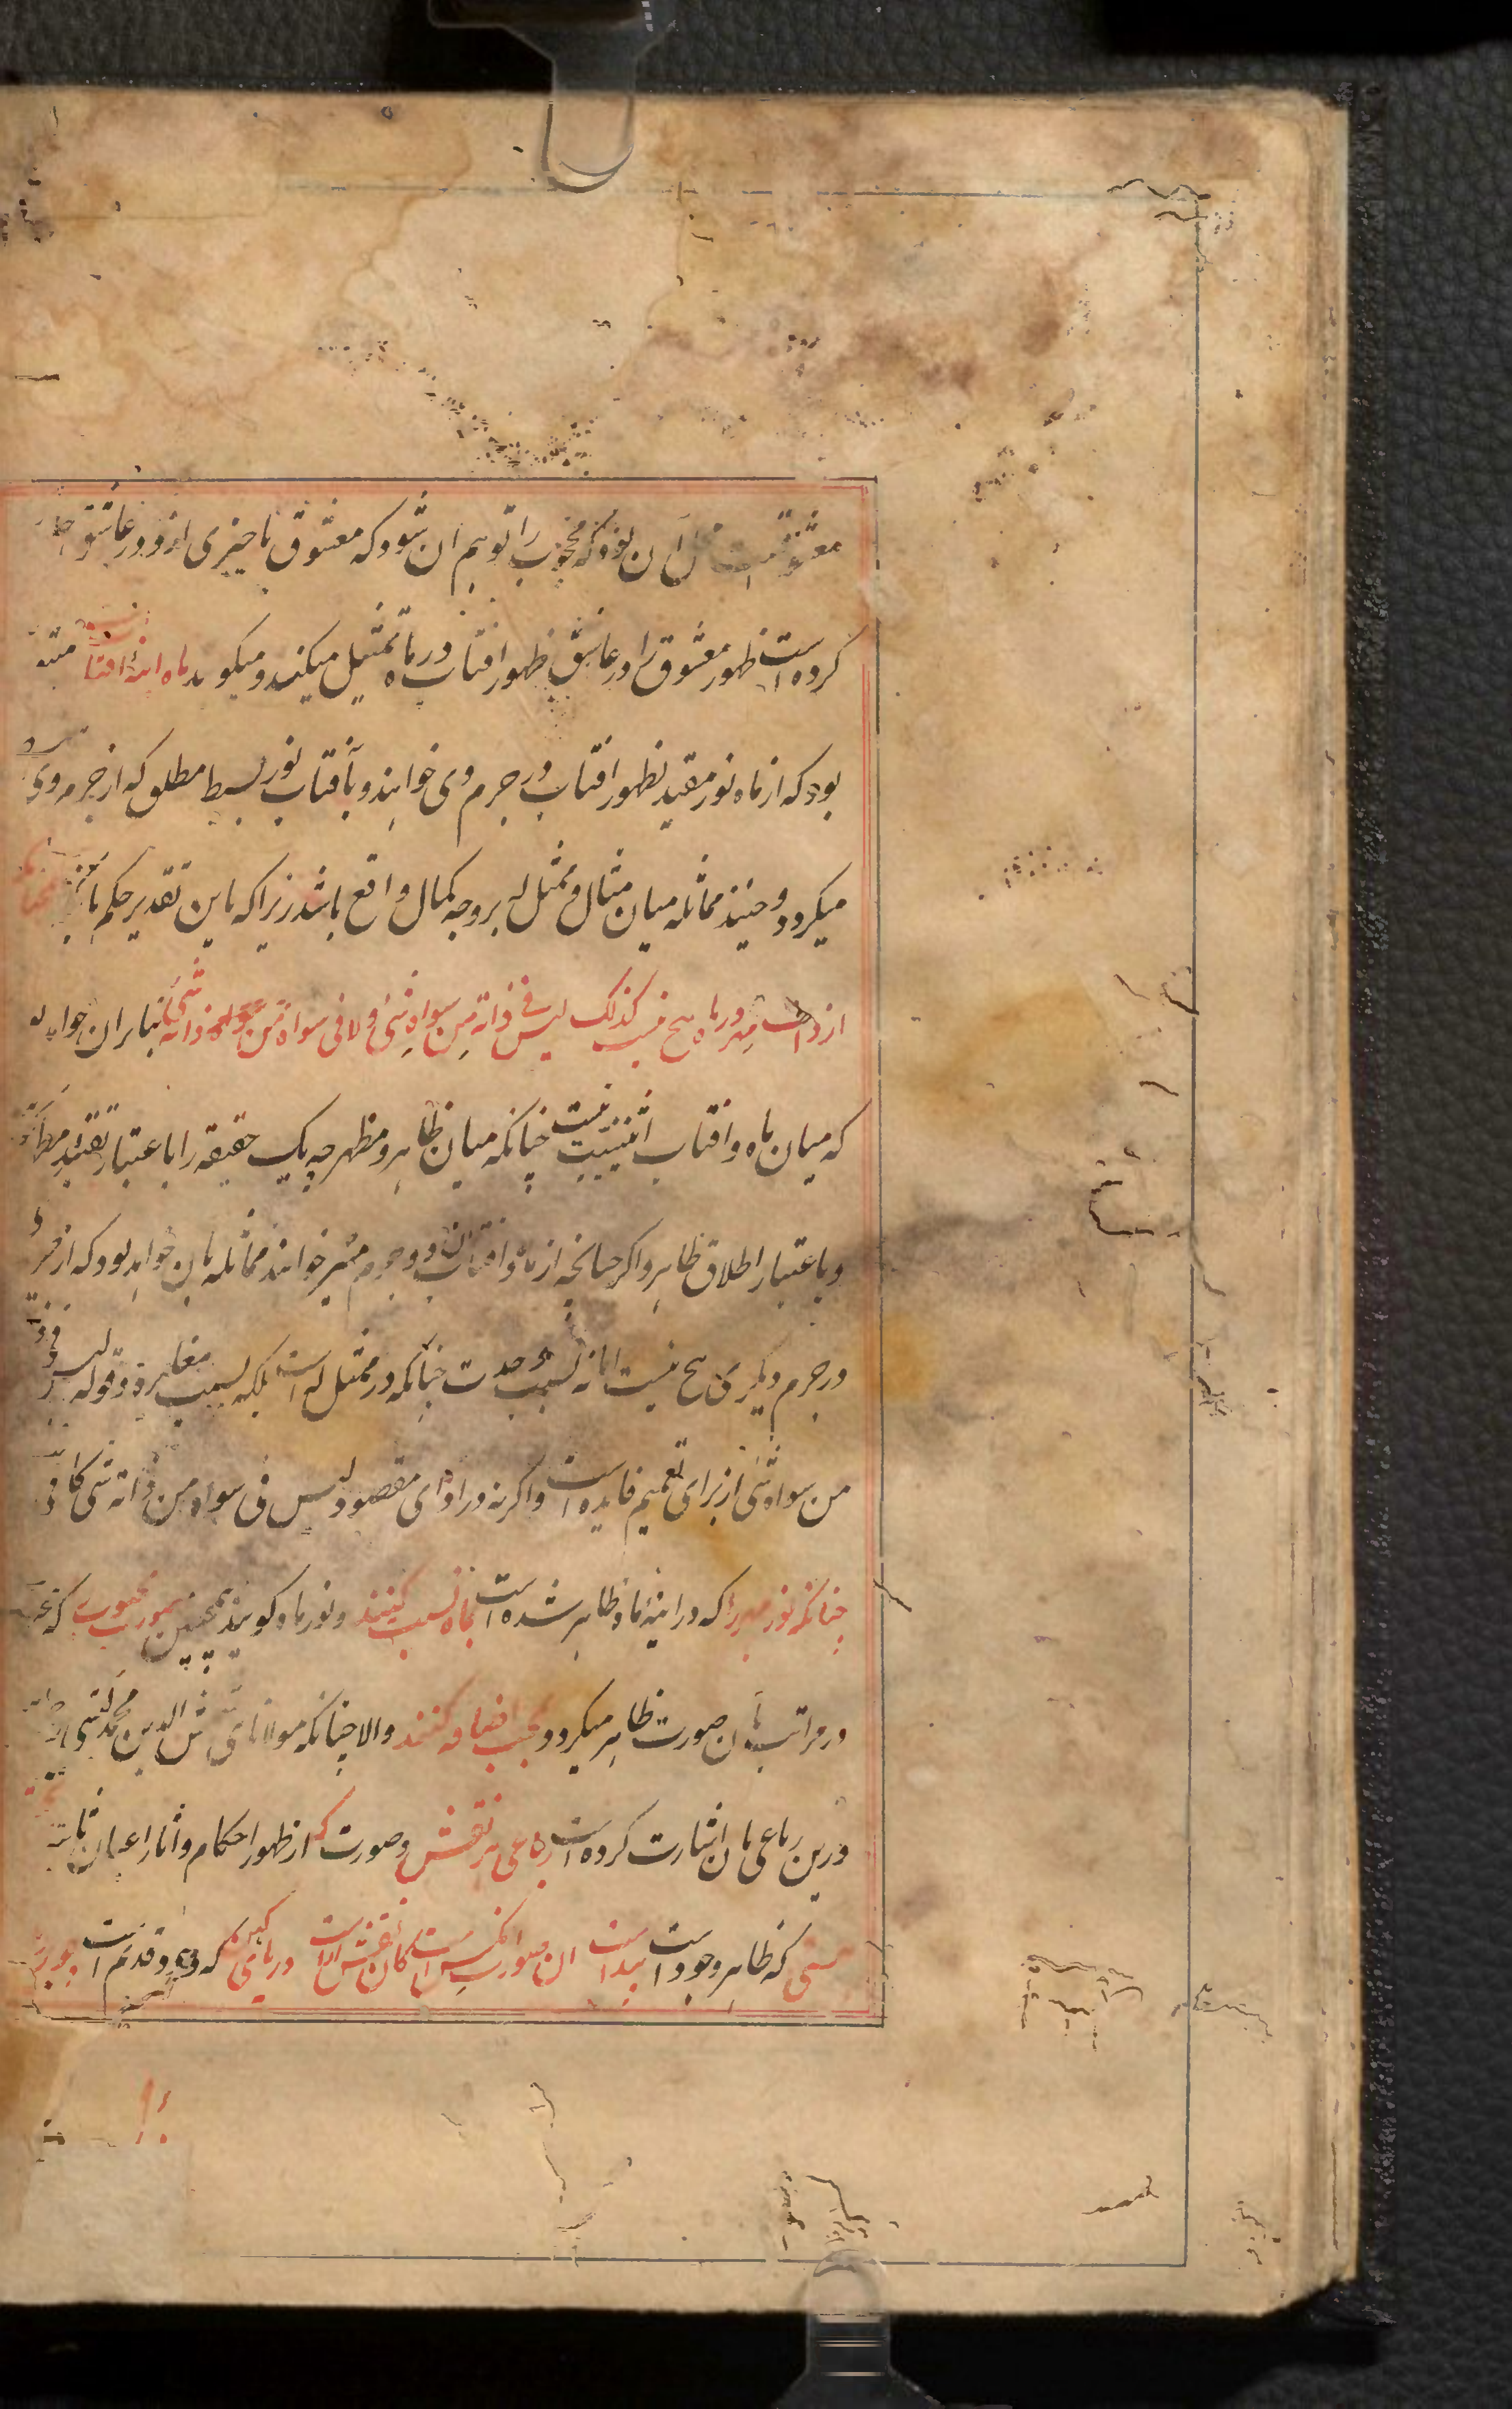 معشوقست آن بود که محجوب را توهم ان شود که معشوق یا چیزی ازو در عاشق
کرده است ظهور معشوق را در عاشق بظهور افتاب در ماه تمثیل میکند و میکوید ماه اینه افتاب
بود که از ماه نور مقید بظهور افتاب در جرم وی خواهند و بآفتاب نور بسیط مطلق که از جرم وی
میکردد و حینئذ مماثله میان مثال و ممثل له بر وجه کمال واقع باشد زیرا که باین تقدیر حکم
از ذات مهر در ماه هیچ نیست کذلک لیس فی ذاته من سواه شی ولا فی سواه من ذاته شی بنابران خواهد
که میان ماه و افتاب اثنینیت نیست چنانکه میان ظاهر و مظهر چه یک حقیقه را باعتبار تقید مظهر
و باعتبار اطلاق ظاهر و اکر چنانچه از ماه و افتاب دو جرم منیر خواهند مماثله بان خواهد بود که از
در جرم دیکری هیچ نیست اما نه بسبب وحدت چنانکه در ممثل له است بلکه بسبب مغایرة و قوله لیس فی
من سواه شی از برای تعمیم فایده است و اکر نه در ادای مقصود لیس فی سواه من ذاته شی کافی
چنانکه نور مهر را که در اینه ماه ظاهر شده است بماه نسبت کنند و نور ماه کویند همچنین صورت محبوب که
در مراتب بآن صورت ظاهر میکردد بمحب اضافه کنند والا چنانکه مولانای شمس الدین محمد
درین رباعی بان اشارت کرده است رباعی هر نقش و صورت که از ظهور احکام و اثار اعیان ثابته
هستی که ظاهر وجود است پیداست ان صورت انکس است کان نقش اراست دریای کهن که وجود قدیم است چو بر